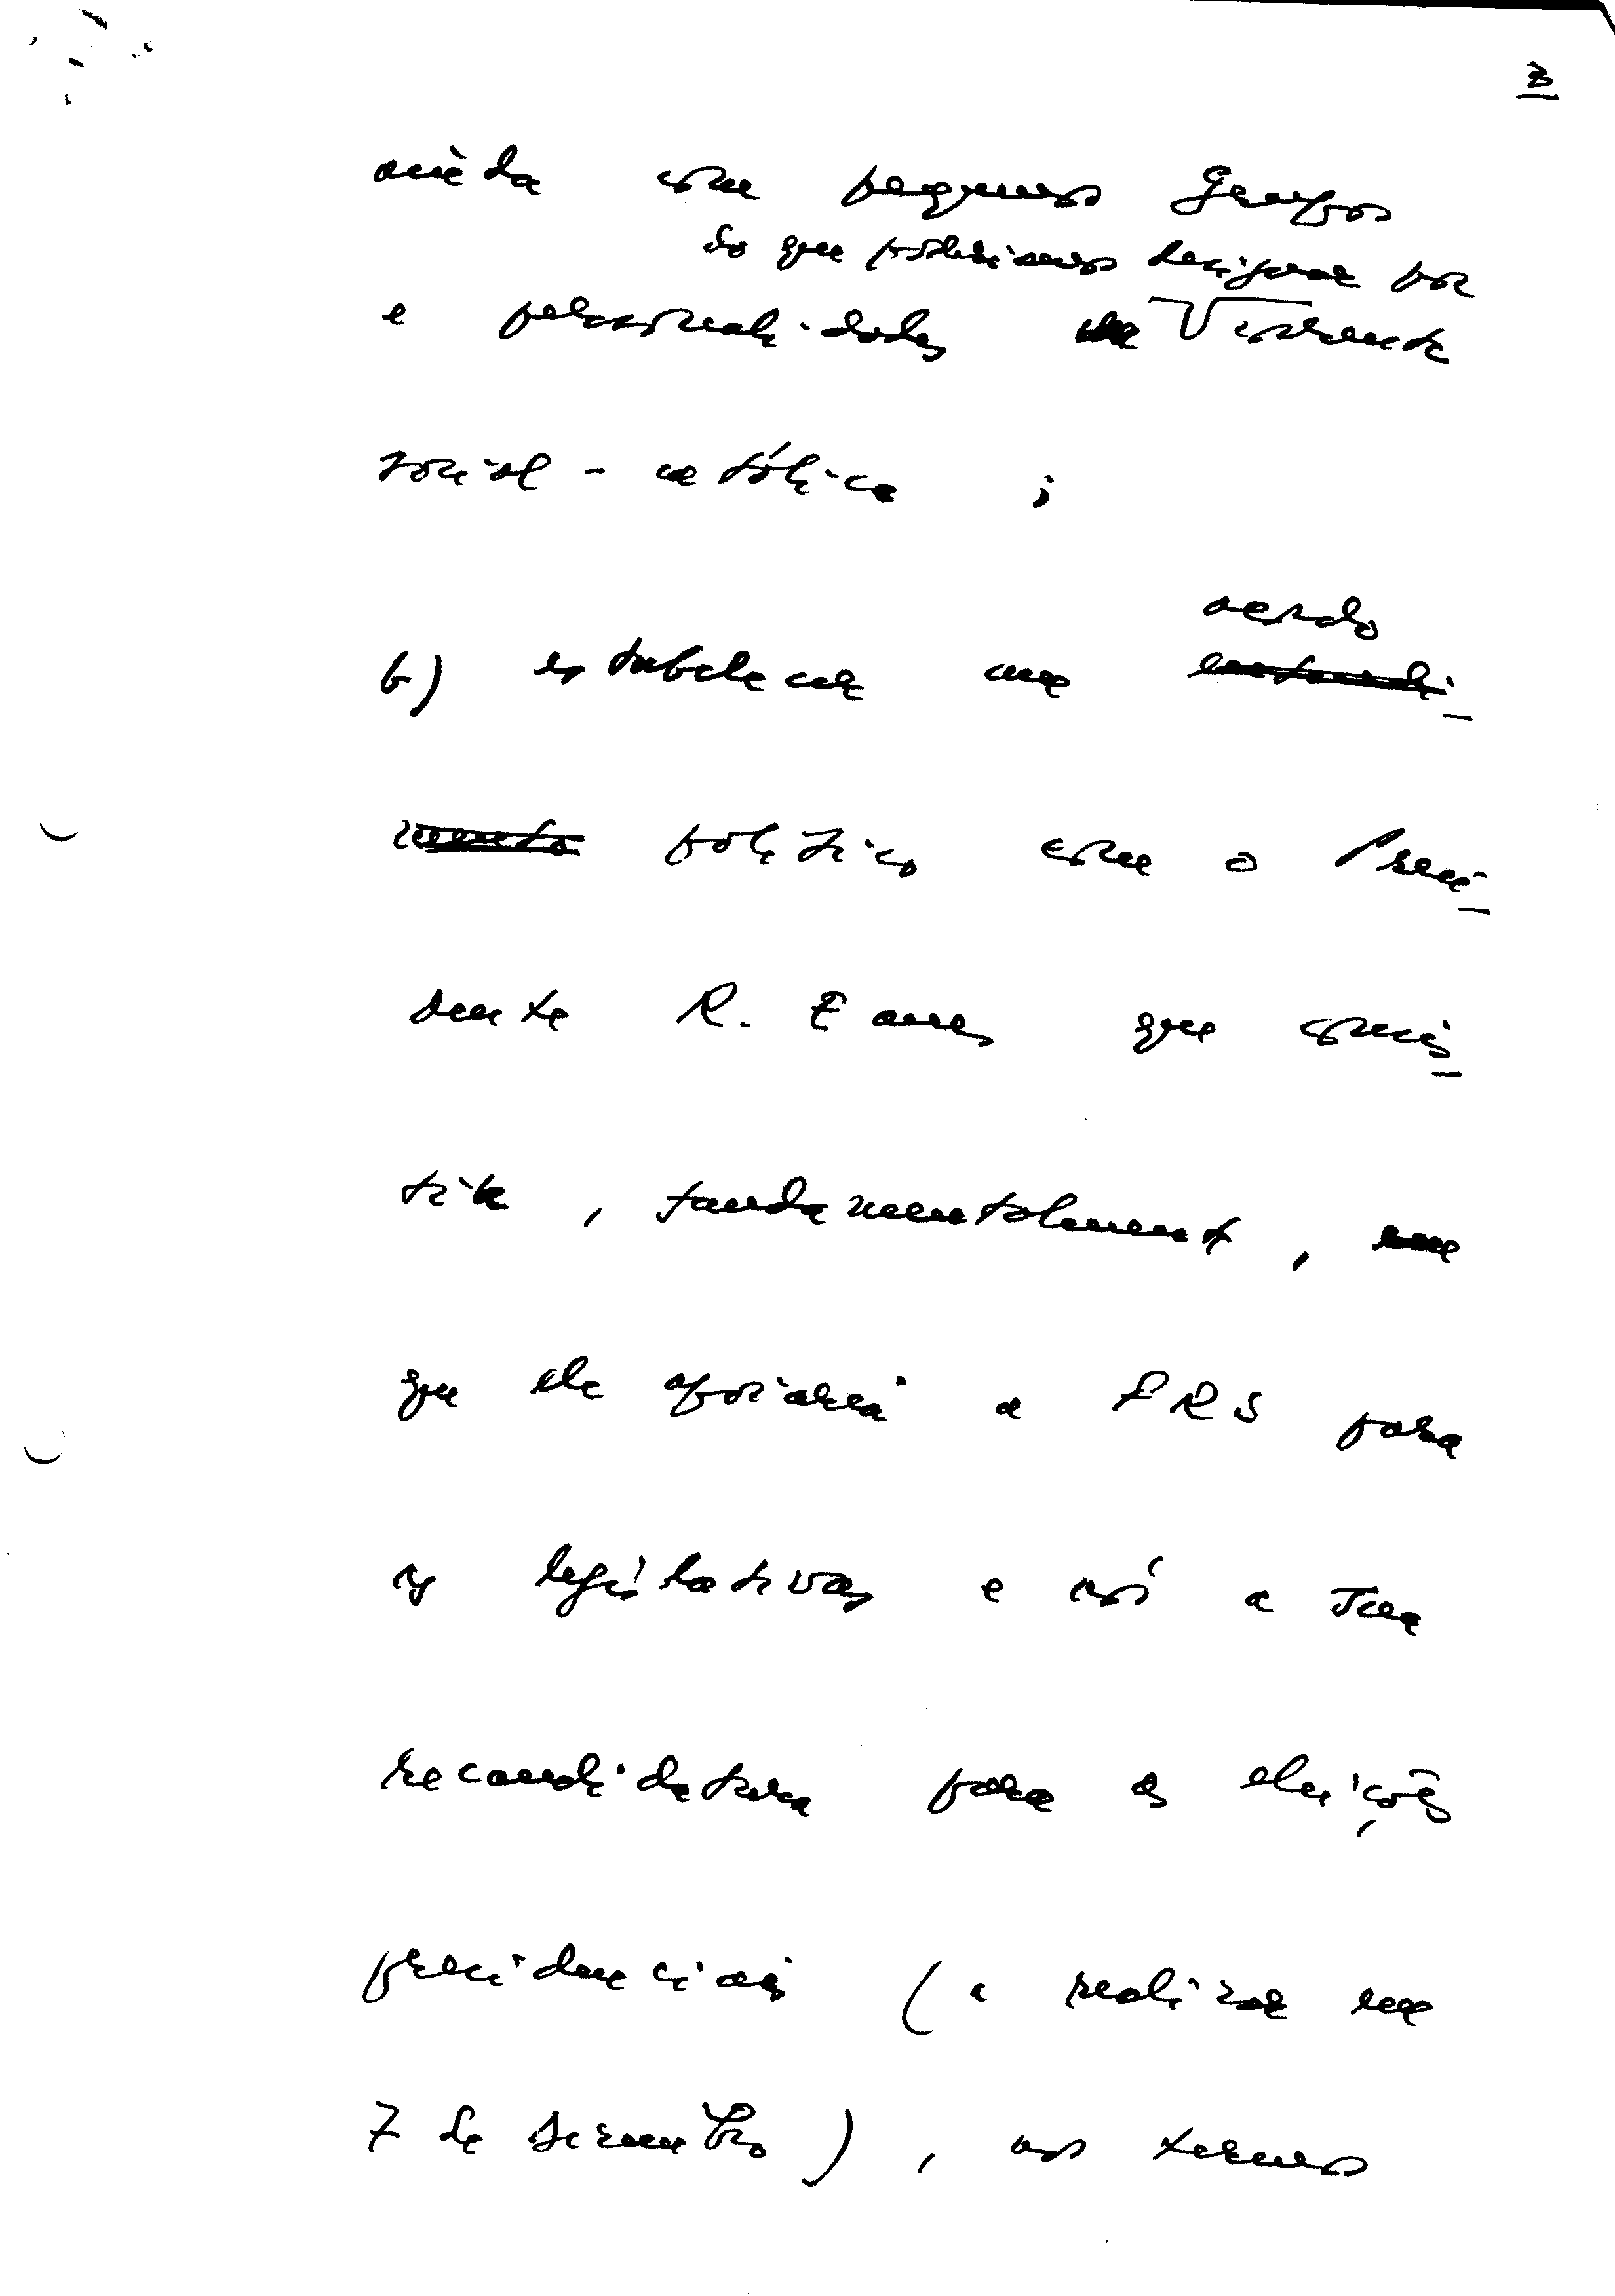 3
ainda com pequenos Grupos
do que poderíamos designar por
e personalidades da Vertente
social-católica;
acordo
b) estabelecer um entendi-
mento político com o Presi-
dente R. Eanes que consis-
tiu, fundamentalmente, em
que ele apoiaria a FRS para
as legislativas e nós a sua
recandidatura para as eleições
presidenciais (a realizar em
7 de Dezembro), nos termos